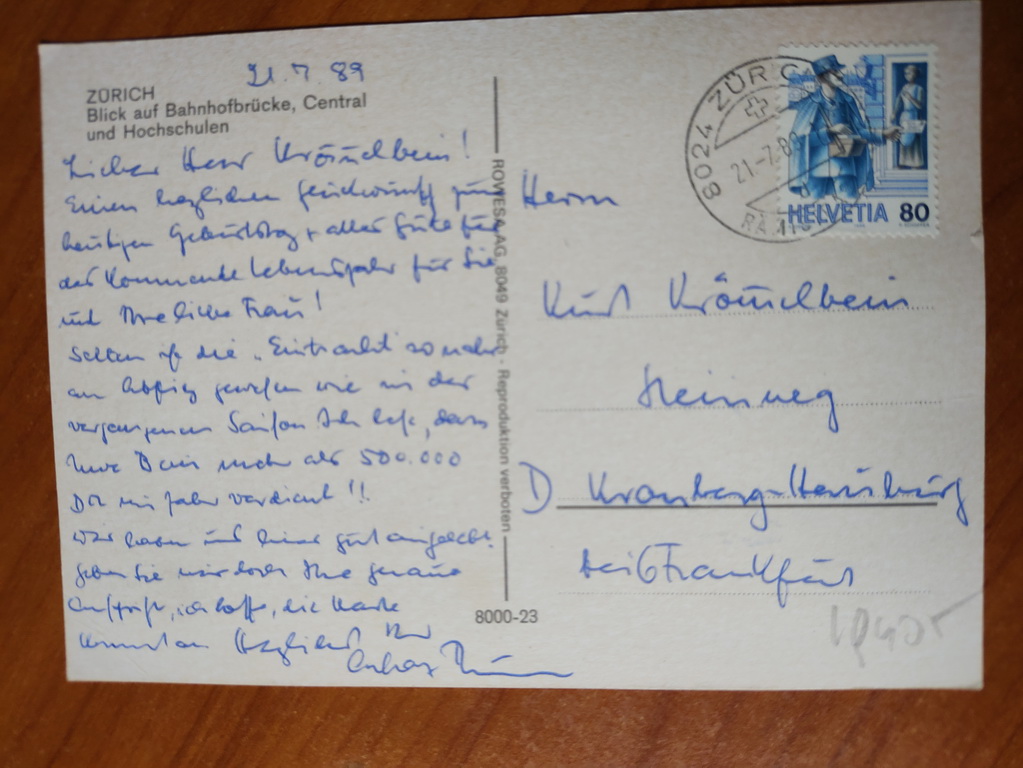 21.7.89
ZÜRICH
Blick auf Bahnhofbrücke, Central
und Hochschulen
Lieber Herr Krömmelbein!
Einen herzlichen Glückwunsch zum
heutigen Geburtstag + alles Gute für
das kommende Lebensjahr für Sie
und Ihre liebe Frau!
Selten ist die "Eintracht so nahe
am Abstieg gewesen wie in der
vergangenen Saison. Ich las, dass
Uwe Bein mehr als 500.000
DM im Jahr verdient!!
Wir haben uns hier gut eingelebt.
Geben Sie mir doch Ihre genaue
Anschrift, ich hoffe, die Karte
kommt an. Herzlichst Ihr
ROVESA AG, 8049 Zürich - Reproduktion verboten
8000-23
8024 ZÜRICH
21.-7.8
RÄMIS
HELVETIA 80
Herrn
Kurt
Steinweg
D Kronberg-
bei Frankfurt